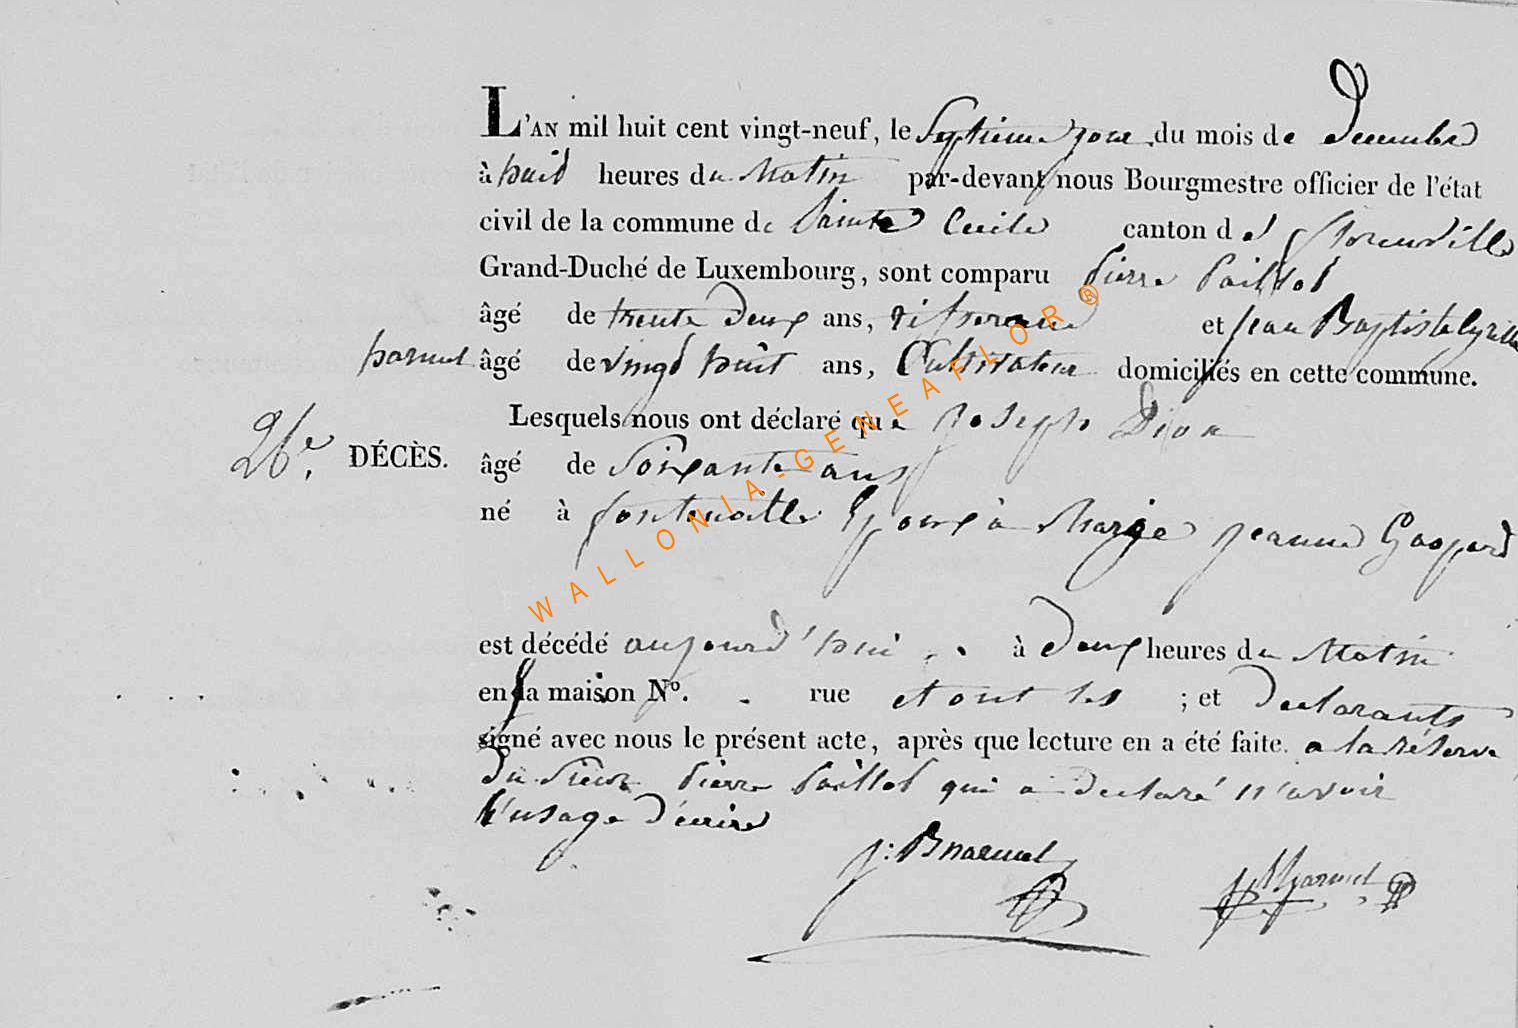 L'AN mil huit cent vingt-neuf, le Septieme jour du mois de Decembre
à huit heures du Matin par-devant nous Bourgmestre officier de l'état
civil de la commune de Sainte Cecile canton de florenville
Grand-Duché de Luxembourg, sont comparu Pierre Paillot
âgé de trente deux ans, et Jean Baptiste
âgé de vingt huit ans, Cultivateur domiciliés en cette commune.
Lesquels nous ont déclaré que Joseph Dion
26e. DÉCÈS. âgé de Soixante ans
né à fontenoille Epoux à Marie Jeanne Gaspard
est décédé aujourd'hui à deux heures du Matin
en sa maison No. rue et ont les ; et declarants
signé avec nous le présent acte, après que lecture en a été faite. a la réserve
du Sieur Pierre Paillot qui a declaré n'avoir
l'usage d'écrire
WALLONIA-GENEAFLOR®